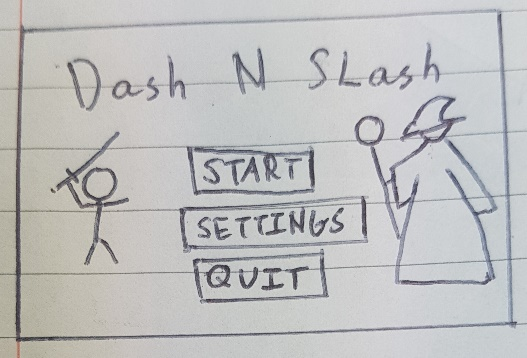 Dash N SLash
START
SETTINGS
QUIT